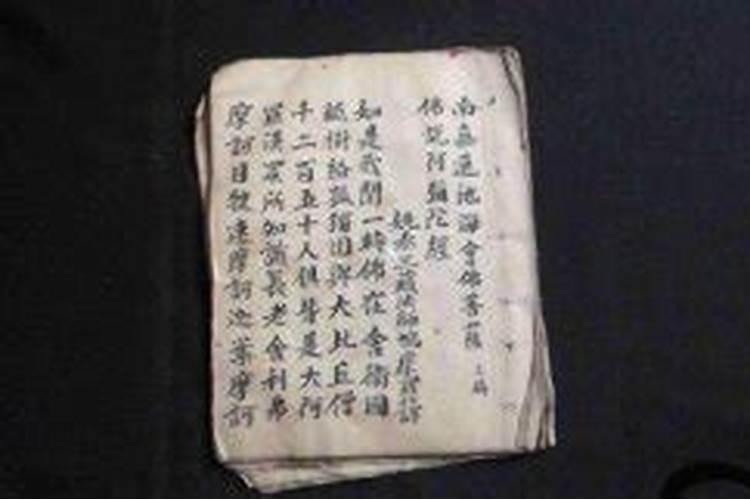 南無蓮池海會佛菩薩 三稱
佛說阿彌陀經
姚秦三藏法師鳩摩羅什譯
如是我聞一時佛在舍衛國
祇樹給孤獨園與大比丘僧
千二百五十人俱皆是大阿
羅漢眾所知識長老舍利弗
摩訶目犍連摩訶迦葉摩訶